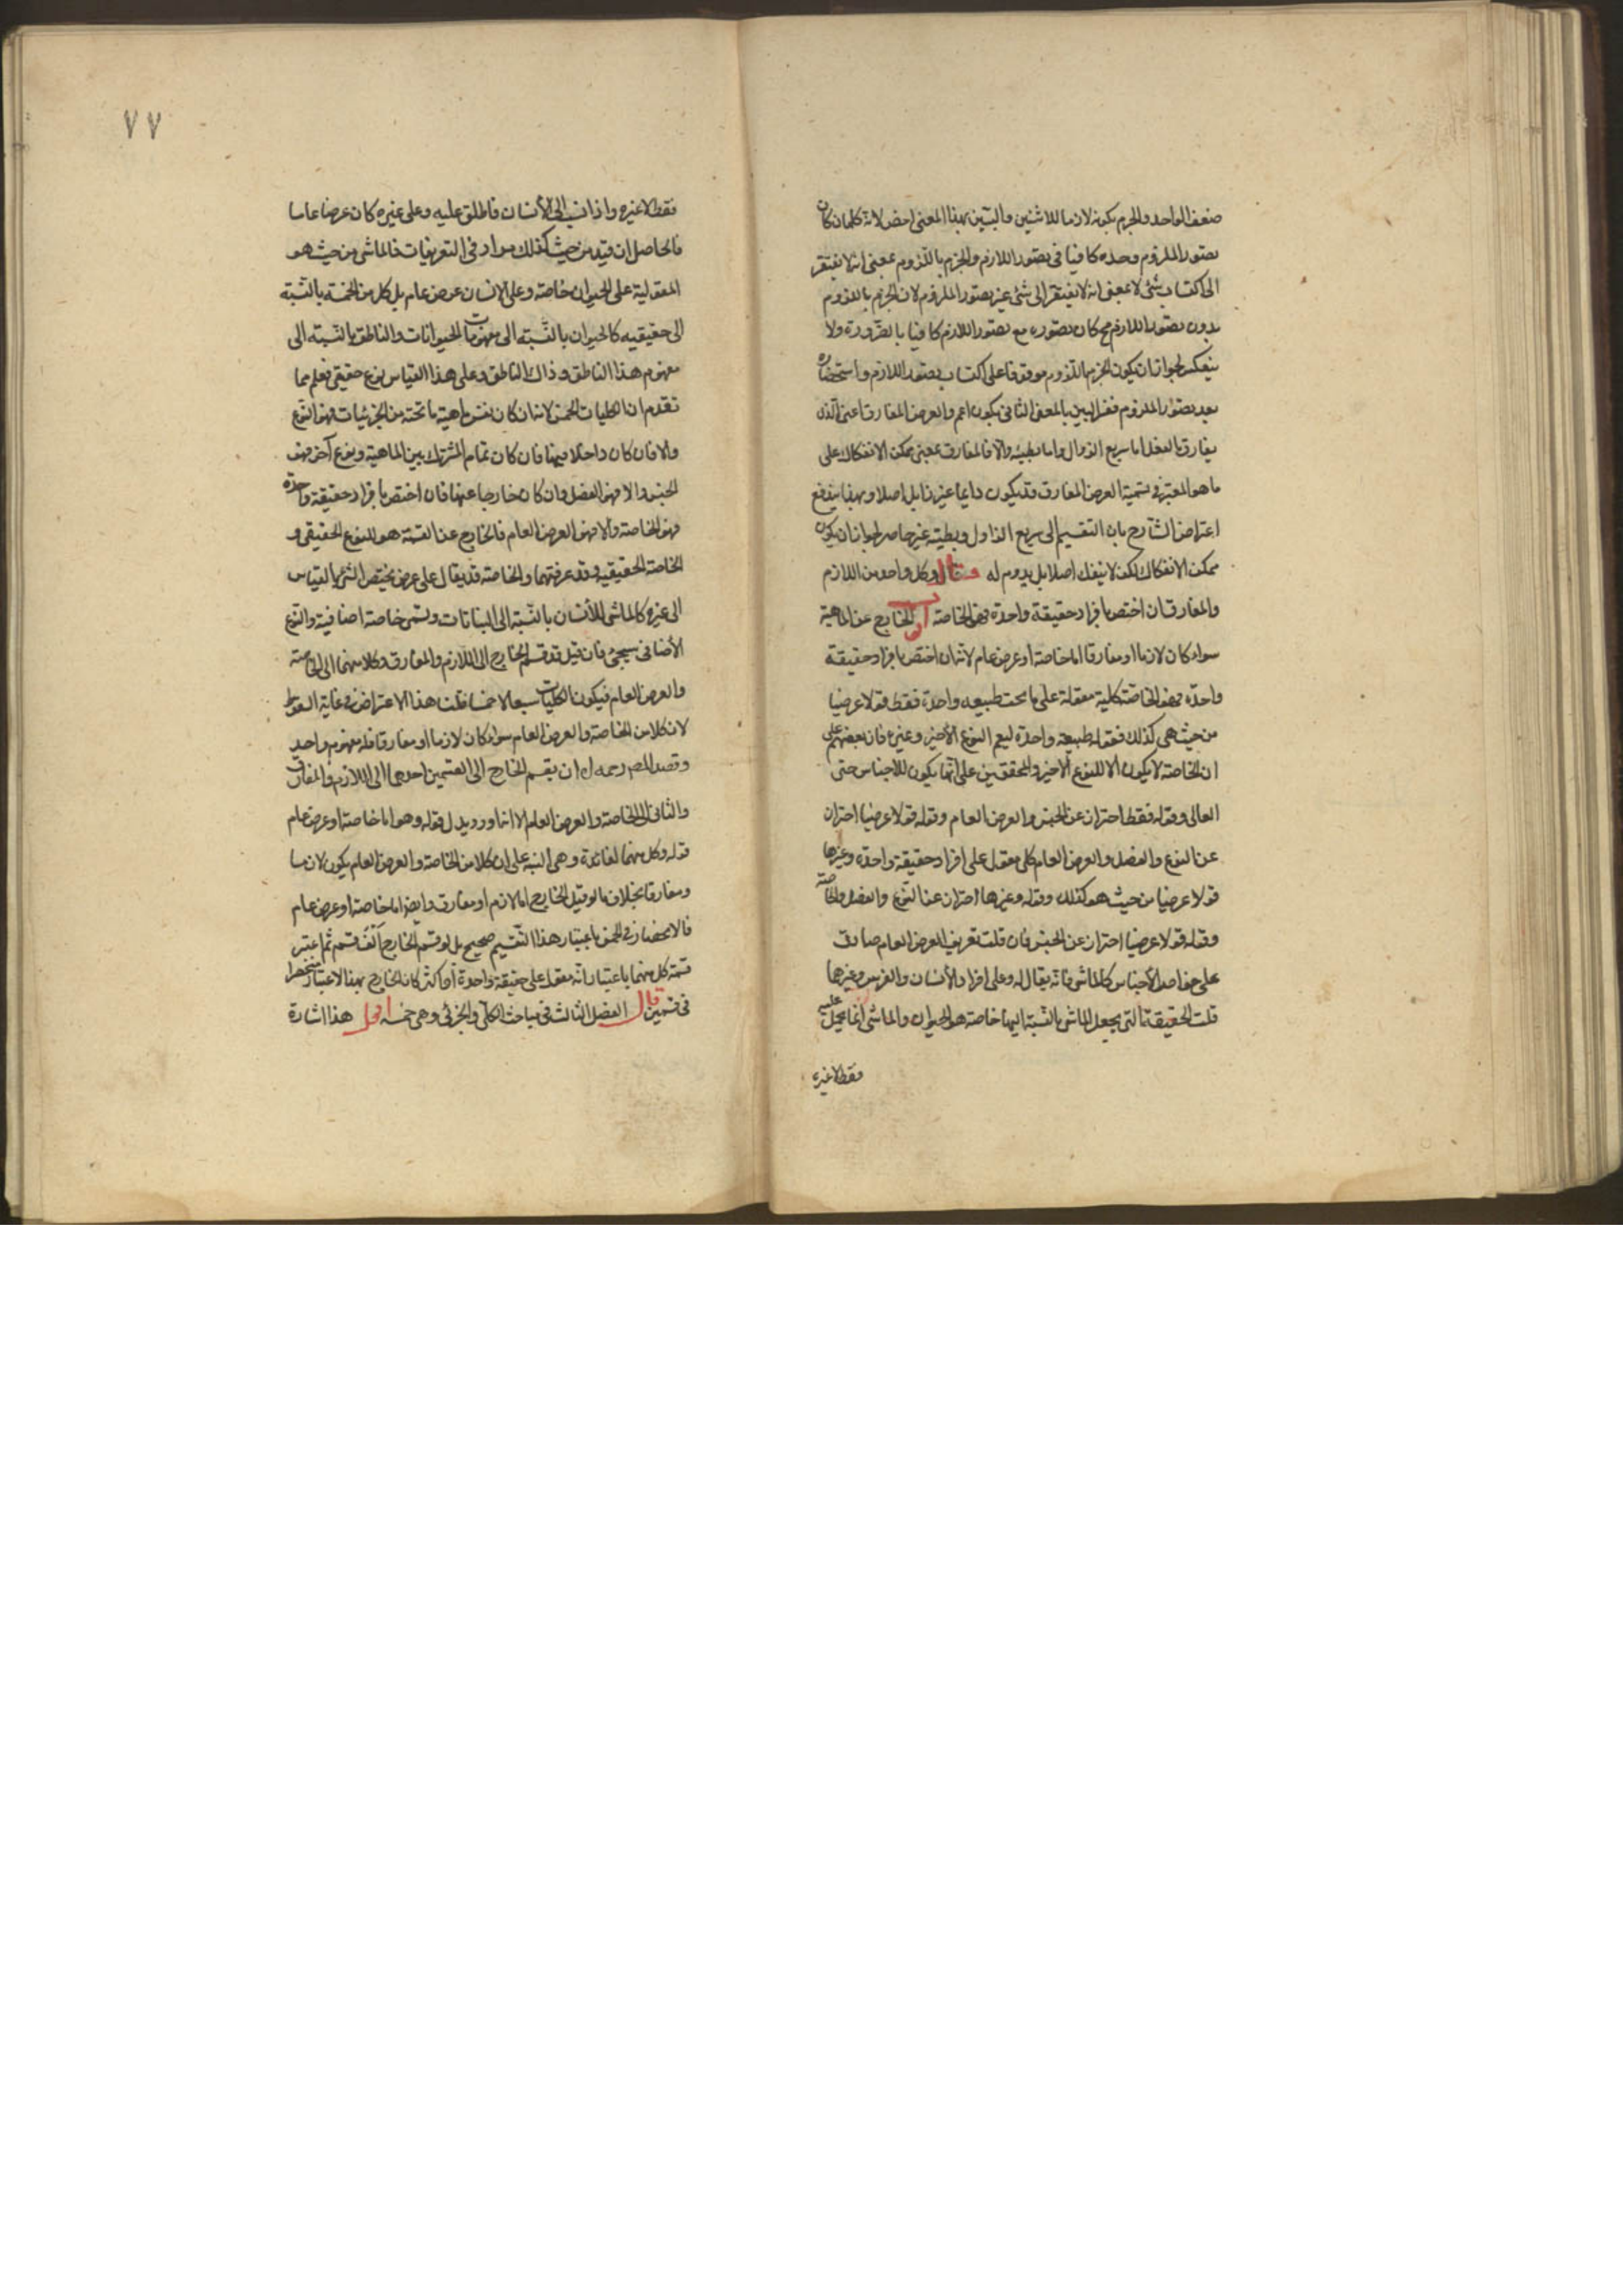 ضعف الواحد والجزم بكونه لازما للاثنين والبين بهذا المعنى اخص لانه كلما كان
تصور الملزوم وحده كافيا فى تصور اللازم والجزم باللزوم بمعنى انه لا يفتقر
الى اكتساب شئ لا بمعنى انه لا يفتقر الى شئ غير تصور الملزوم لان الجزم باللزوم
بدون تصور اللازم مح كان تصوره مع تصور اللازم كافيا بالضرورة ولا
ينعكس لجواز ان يكون الجزم باللزوم موقوفا على اكتساب تصور اللازم واستحضاره
بعد تصور الملزوم فغير البين بالمعنى الثانى يكون اعم والعرض المفارق اعنى الذى
يفارق بالفعل اما سريع الزوال واما بطيئه والا فالمفارق بمعنى ممكن الانفكاك على
ما هو المعتبر فى تسمية العرض المفارق قد يكون دايما غير زايل اصلا وبهذا يندفع
اعتراض الشارح بان التقسيم الى سريع الزاول وبطيئه غير حاصر لجواز ان يكون
ممكن الانفكاك لكن لا ينفك اصلا بل يدوم له قال وكل واحد من اللازم
والمفارق ان اختص بافراد حقيقة واحدة فهى الخاصة اقول الخارج عن الماهية
سواء كان لازما او مفارقا اما خاصة او عرض عام لانه ان اختص بافراد حقيقة
واحدة فهو الخاصة كلية مقولة على ما تحت طبيعه واحدة فقط قولا عرضيا
من حيث هى كذلك فقوله طبيعة واحدة ليعم النوع الأخير وغيره فان بعضهم على
ان الخاصة لا يكون الا للنوع الاخير والمحققين على انها يكون للاجناس حتى
العالى وقوله فقط احتراز عن الجنس والعرض العام وقوله قولا عرضيا احتراز
عن النوع والفصل والعرض العام كلى مقول على افراد حقيقة واحدة وغيرها
قولا عرضيا من حيث هو كذلك وقوله وغيرها احتراز عن النوع والفصل والخاصة
وقوله قولا عرضيا احتراز عن الجنس فان قلت تعريف العرض العام صادق
على خواص الأجناس كالماشى فانه يقال له وعلى افراد الأنسان والفرس وغيرها
قلت الحقيقة التى يجعل الماشى بالنسبة اليها خاصة هو الحيوان والماشى انما يحمل عليه
فقط لا غيره
٧٧
فقط لا غيره واذا نسب الى الأنسان فاطلق عليه وعلى غيره كان عرضا عاما
فالحاصل ان قيد من حيث كذلك مراد فى التعريفات فالماشى من حيث هو
المقولية على الحيوان خاصة وعلى الانسان عرض عام بل كل من الخمسة بالنسبة
الى حقيقيه كالحيوان بالنسبة الى مفهومات الحيوانات والناطق بالنسبة الى
مفهوم هذا الناطق وذاك الناطق وعلى هذا القياس نوع حقيقى فعلم مما
تقدم ان الكليات الخمس لانه ان كان نفس ماهية ما تحته من الجزئيات فهو النوع
والا فان كان داخلا فيها فان كان تمام المشترك بين الماهية ونوع آخر فهو
الجنس والا فهو الفصل وان كان خارجا عنها فان اختص بافراد حقيقة واحدة
فهو الخاصة والا فهو العرض العام فالخارج عن القسمة هو النوع الحقيقى و
الخاصة الحقيقيه وقد عرفتهما والخاصة قد يقال على عرض يختص الشئ بالقياس
الى غيره كالماشى للأنسان بالنسبة الى النباتات وتسمى خاصة اضافية والنوع
الأضافى سيجئ فان قيل قد قسم الخارج الى اللازم والمفارق وكلا منهما الى الخاصة
والعرض العام فيكون الكليات سبعا لا خمسا قلت هذا الاعتراض فى غاية السقوط
لان كلا من الخاصة والعرض العام سواء كان لازما او مفارقا فله مفهوم واحد
وقصد المص رحمه الله ان يقسم الخارج الى القسمين احدهما الى اللازم والمفارق
والثانى الى الخاصة والعرض العام الا انه اورد بدل قوله وهو اما خاصة او عرض عام
قوله وكل منهما لفائدة وهى التنبيه على ان كلا من الخاصة والعرض العام يكون لازما
ومفارقا بخلاف ما لو قيل الخارج اما لازم او مفارق وايضا اما خاصة او عرض عام
فالانحصار فى الخمس باعتبار هذا التقسيم صحيح بل لو قسم الخارج الف قسم ثم اعتبر
قسمة كل منهما باعتبار انه مقول على حقيقة واحدة أو اكثر كان الخارج بهذا الاعتبار منحصرا
فى قسمين قال الفصل الثالث فى مباحث الكلى والجزئى وهى خمسة اقول هذا اشارة